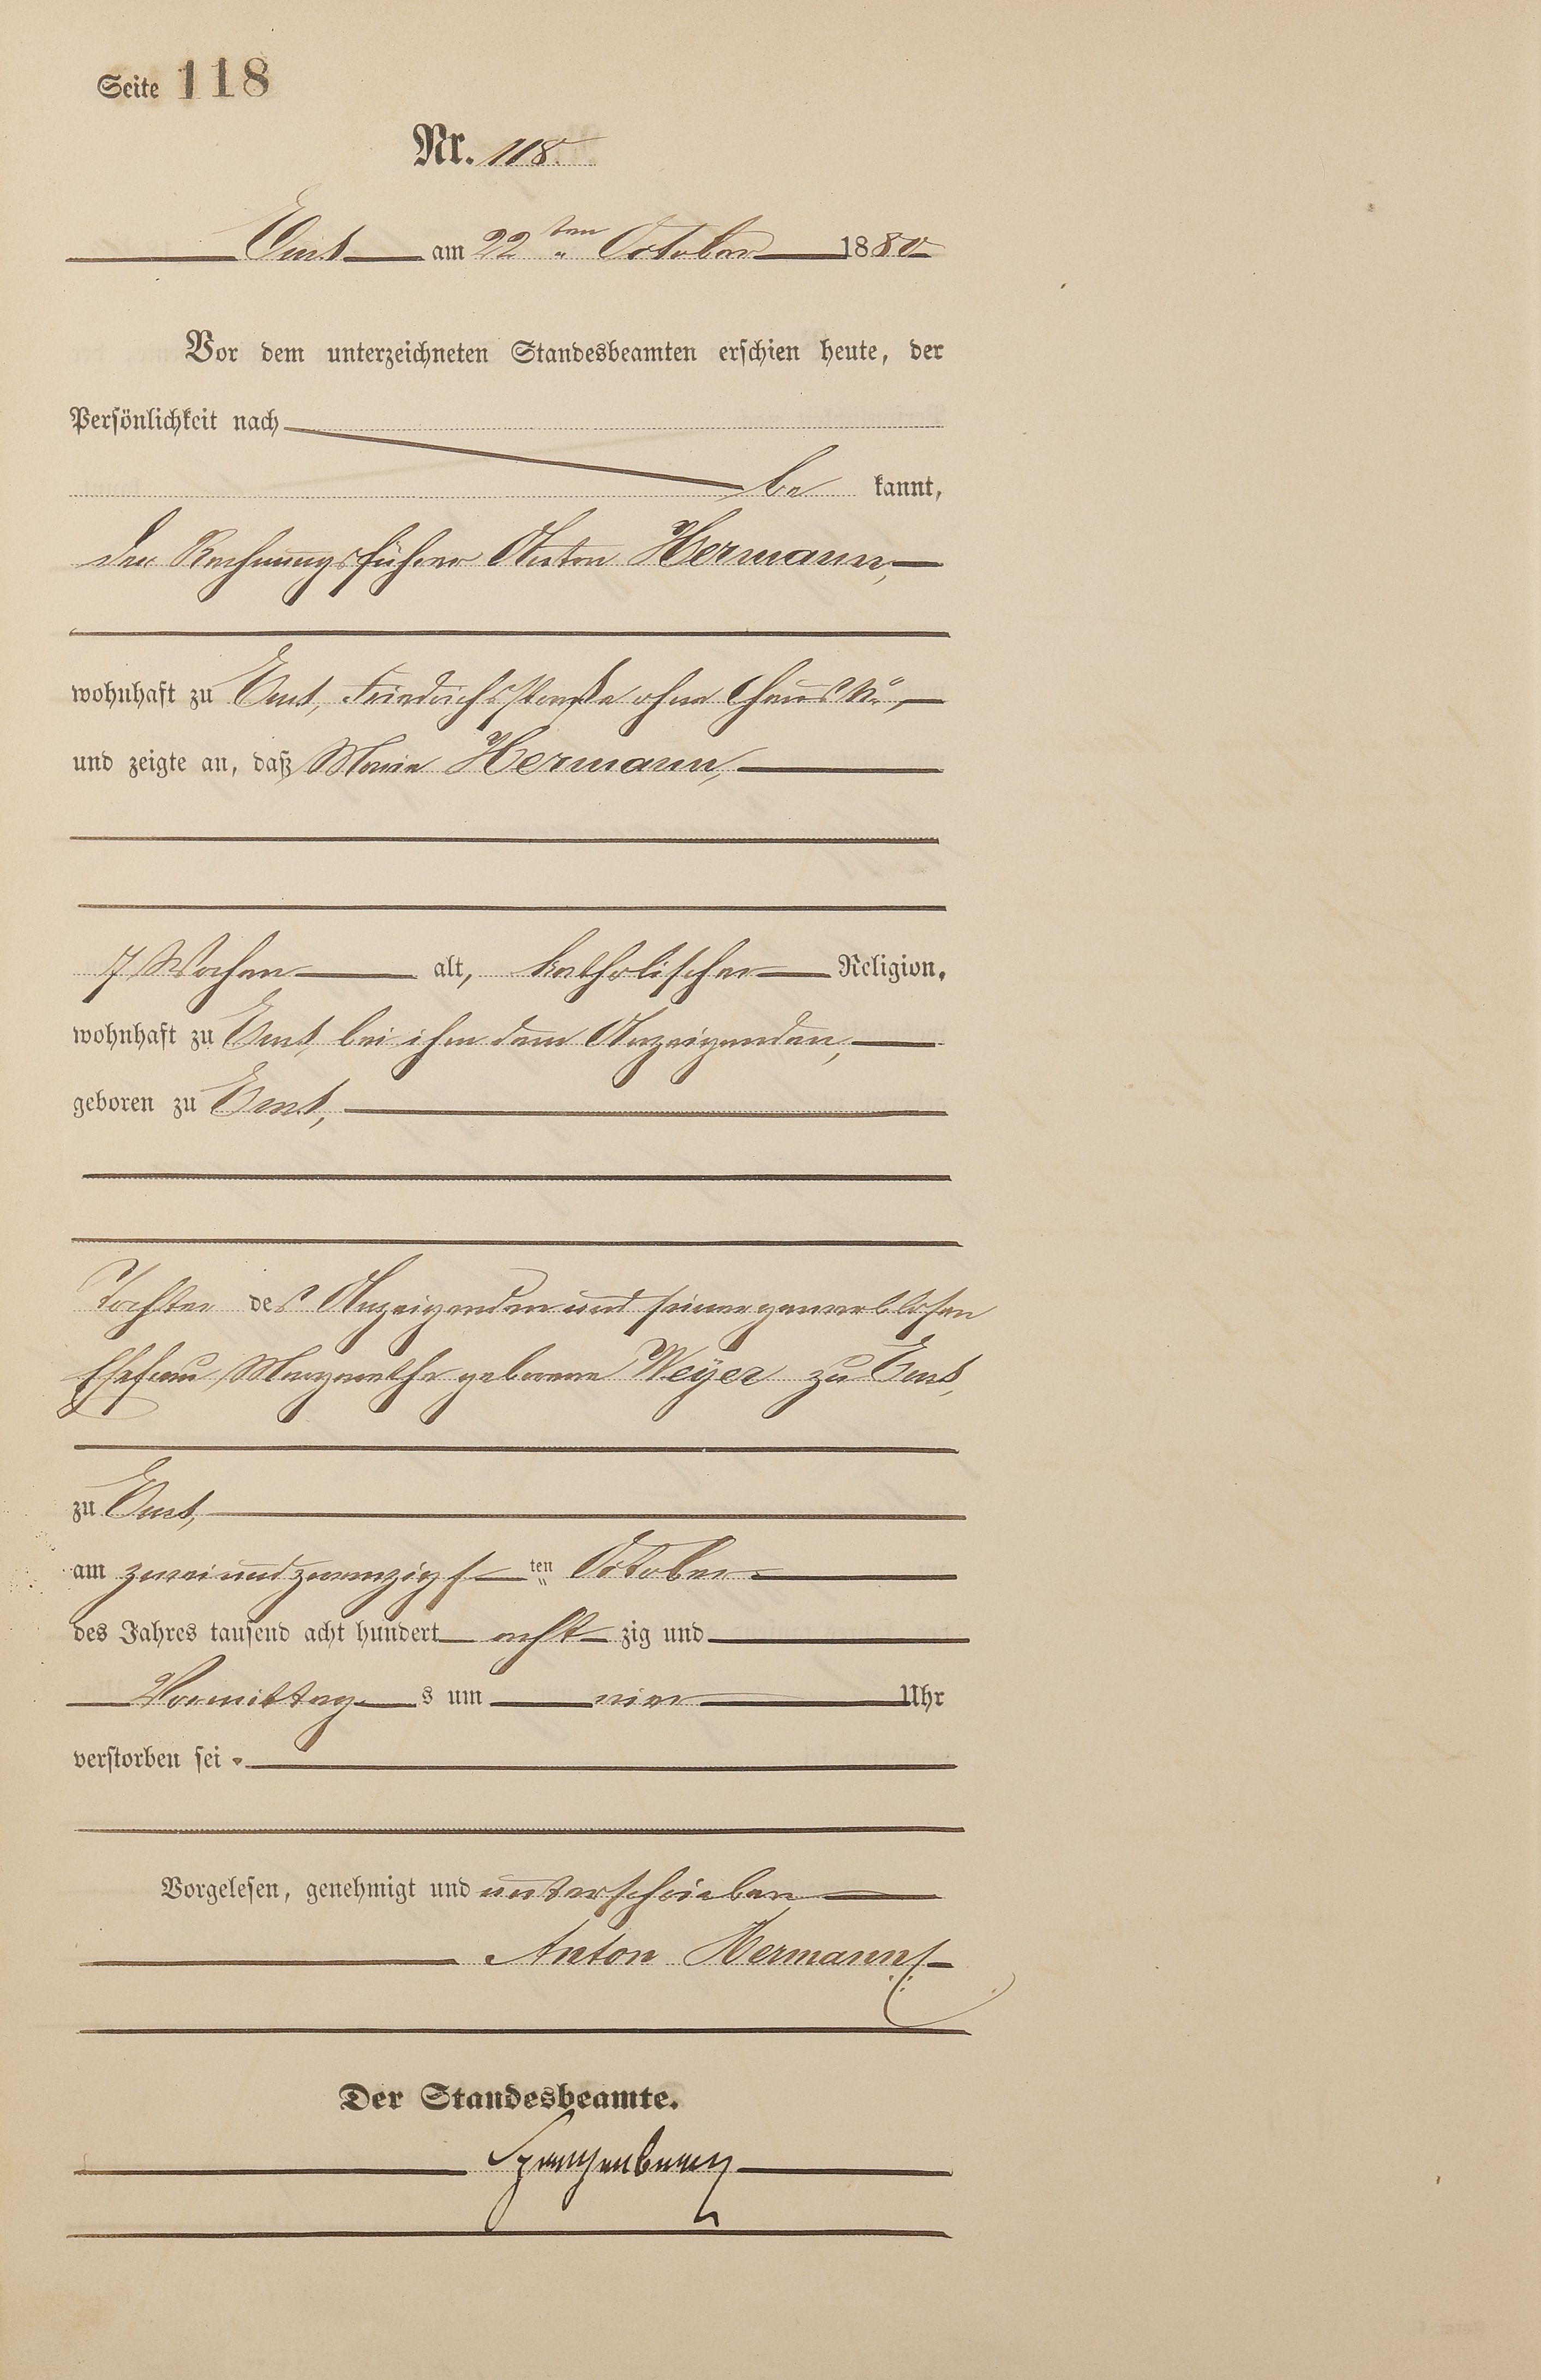 Seite 118
Nr. 118.
Ems am 22ten October 1880
Vor dem unterzeichneten Standesbeamten erschien heute, der
Persönlichkeit nach
be kannt,
der Rechnungsführer Anton Hermann,
wohnhaft zu Ems, Friedrichsstraße ohne Haus No,
und zeigte an, daß Maria Hermann,
7 Wochen alt, katholischer Religion,
wohnhaft zu Ems bei ihm dem Anzeigenden,
geboren zu Ems,
Tochter des Anzeigenden und seiner gewerblosen
Ehefrau Margarethe geborene Weyer zu Ems,
zu Ems,
am zweiundzwanzigsten October
des Jahres tausend acht hundert acht zig und
Vormittag s um vier Uhr
verstorben sei.
Vorgelesen, genehmigt und unterschrieben
Anton Hermann
Der Standesbeamte.
Spangenberg